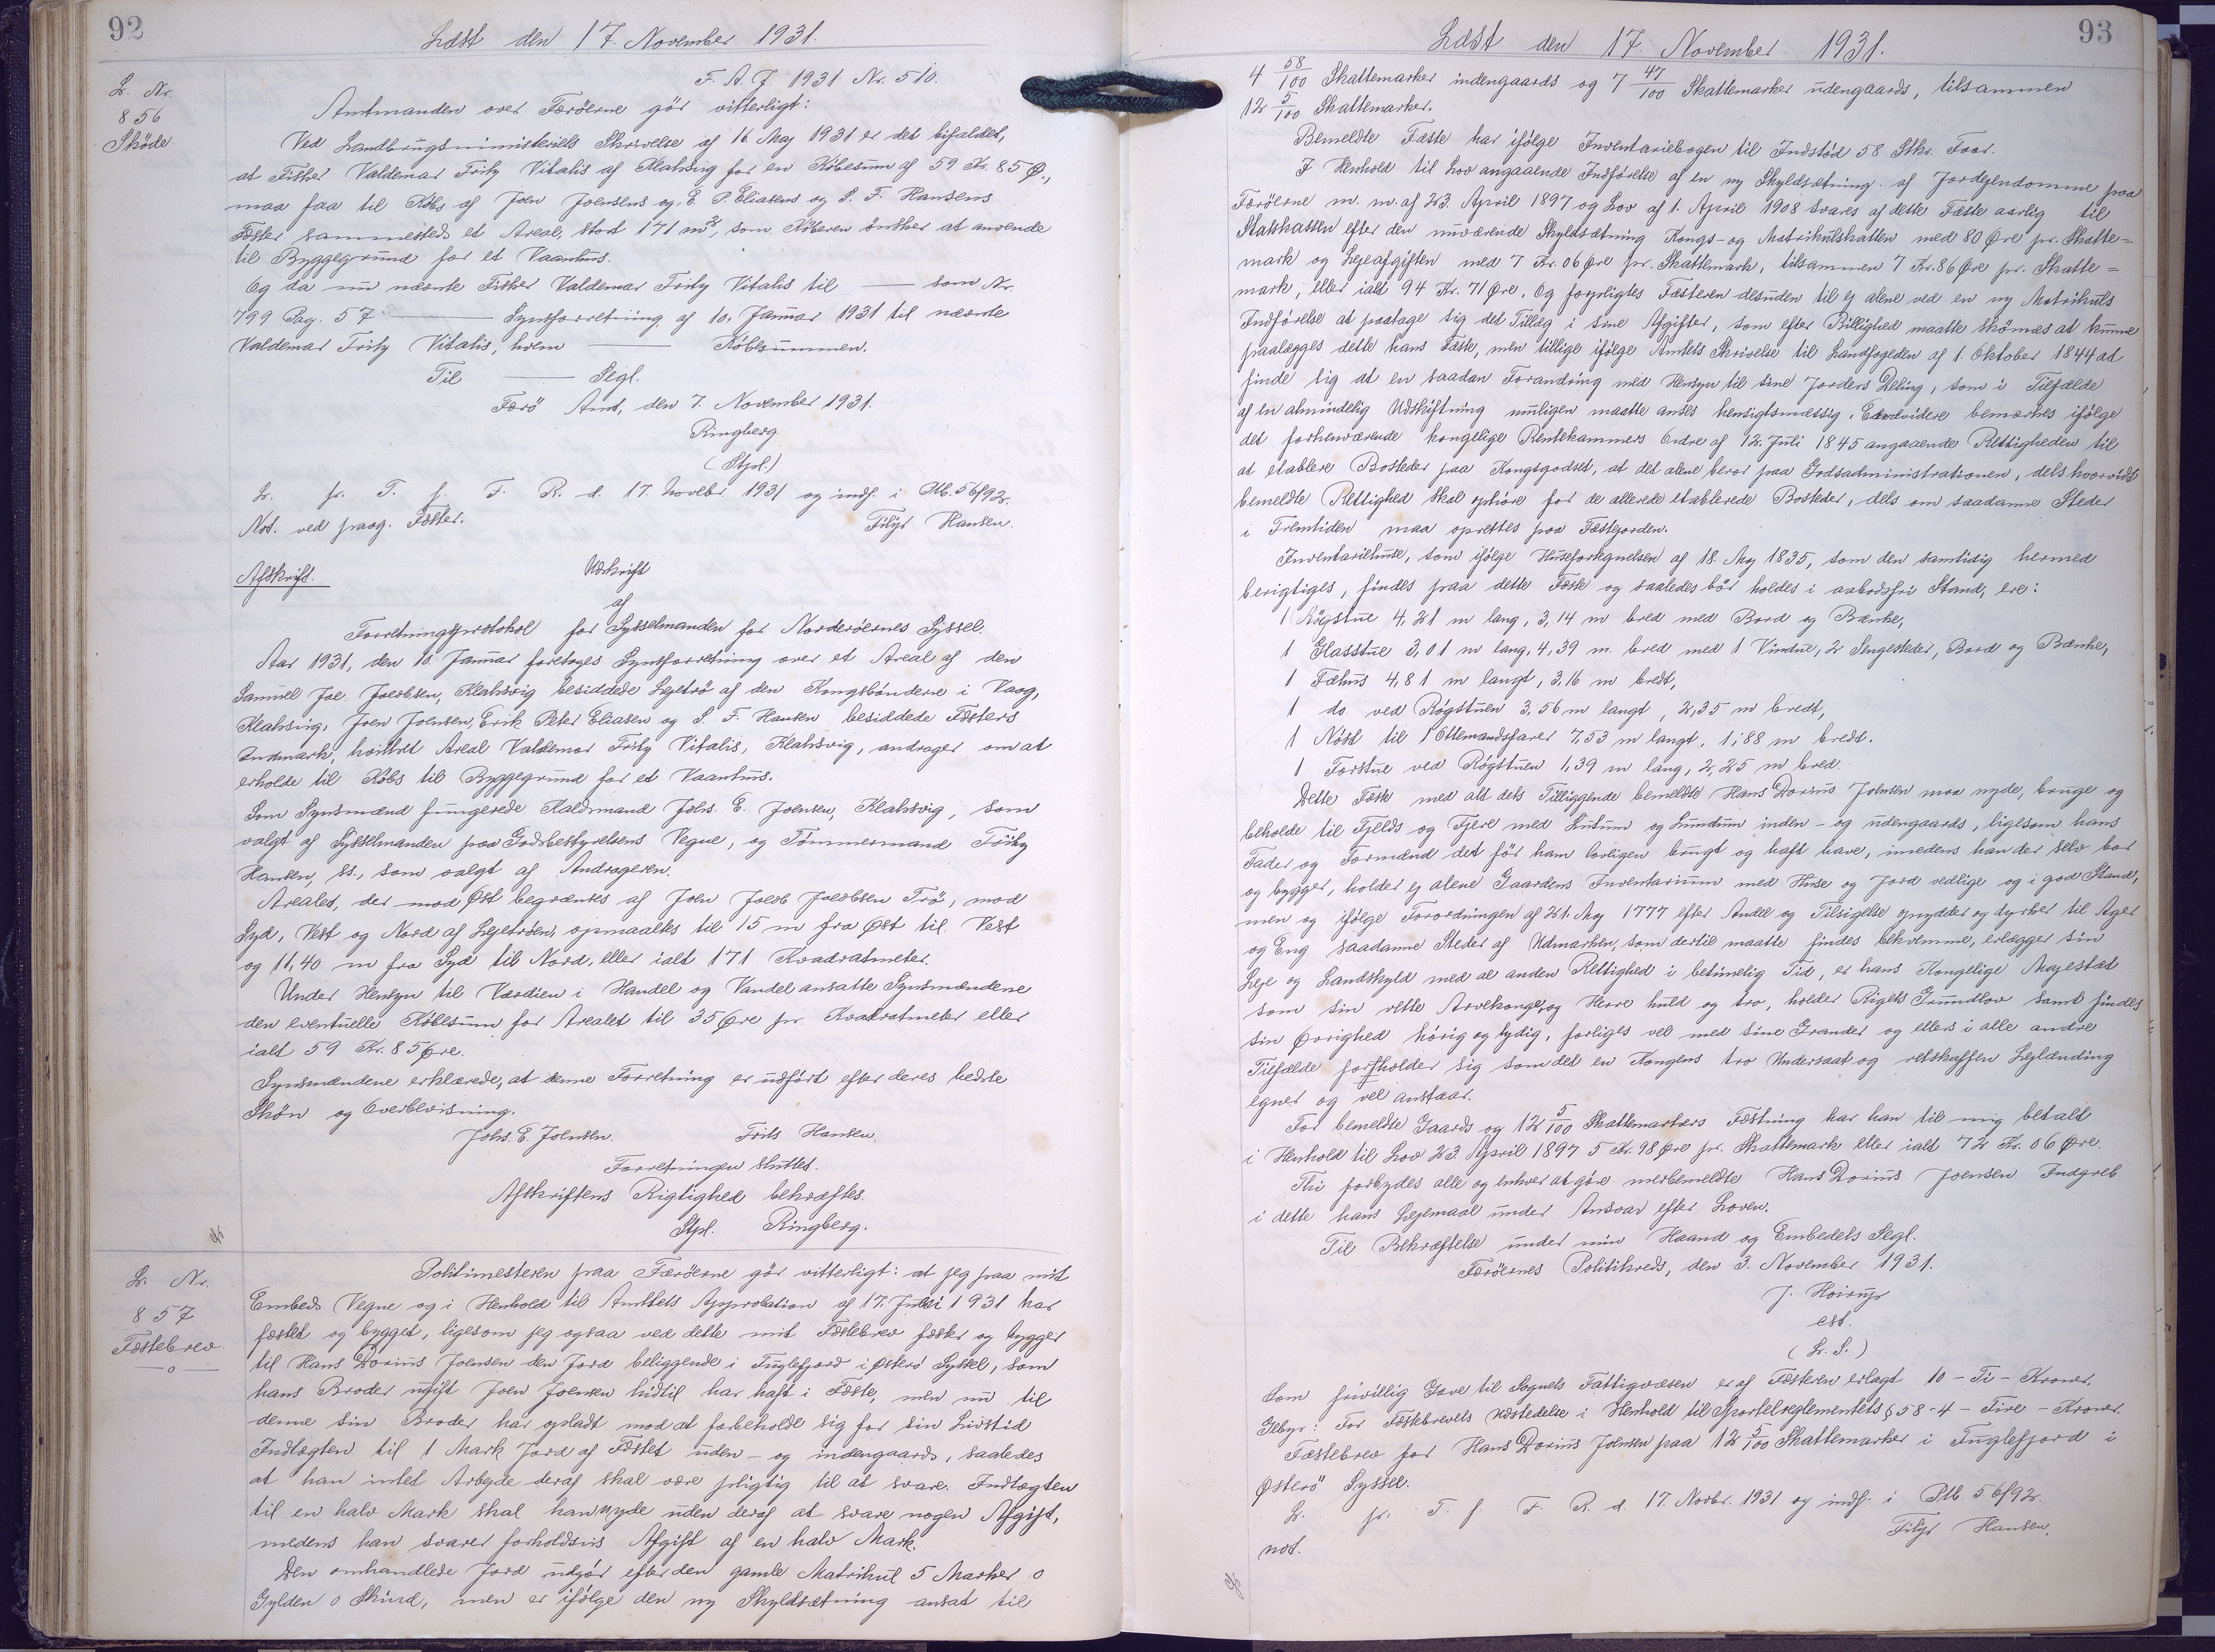 92
Læst den 17. November 1931.
L. Nr.
856
Skøde
F. A. J 1931 Nr. 510.
Amtmanden over Færöerne gör vitterligt:
Ved Landbrugsministeriets Skrivelse af 16. Maj 1931 er det bifaldet,
at Fisker Valdemar Fritz Vitalis af Klaksvig for en Købesum af 59 Kr. 85 Ø.,
maa faa til Købs af Joen Joensens og E. P. Eliasens og S. F. Hansens
Fæster sammesteds et Areal, stort 171 m², som Köberen önsker at anvende
til Byggegrund for et Vaanhus.
Og da nu nævnte Fisker Valdemar Fritz Vitalis til —— som Nr.
799 Pag. 57 —— Synsforretning af 10. Januar 1931 til nævnte
Valdemar Fritz Vitalis, hvem —— Købesummen.
Til —— Segl.
Færö Amt, den 7. November 1931.
Ringberg
(Stpl.)
L. fr. T. f. F. R. d. 17. Novebr. 1931 og indf. i Ptb. 56f92.
Not. ved paag. Fæster.
Filip Hansen.
Afskrift.
Udskrift
af
Forretningsprotokol for Sysselmanden for Norderöernes Syssel.
Aar 1931, den 10. Januar foretoges Synsforretning over et Areal af den
Samuel Joe. Jacobsen, Klaksvig besiddede Lejetrö af den Kongsbönderne i Vaag,
Klaksvig, Joen Joensen, Erik Peter Eliasen og S. F. Hansen besiddede Fæsters
Indmark, hvilket Areal Valdemar Fritz Vitalis, Klaksvig, andrager om at
erholde til Købs til Byggegrund for et Vaanhus.
Som Synsmænd fungerede Kaldsmand Johs. E. Joensen, Klaksvig, som
valgt af Sysselmanden paa Godsbestyrelsens Vegne, og Tömmermand Fritz
Hansen, ss., som valgt af Andrageren.
Arealet, der mod Øst begrænses af Joen Jacob Jacobsen Trö, mod
Syd, Vest og Nord af Lejetröen, opmaaltes til 15 m fra Øst til Vest
og 11,40 m fra Syd til Nord, eller ialt 171 Kvadratmeter.
Under Hensyn til Værdien i Handel og Vandel ansatte Synsmændene
den eventuelle Købesum for Arealet til 35 Øre pr. Kvadratmeter eller
ialt 59 Kr. 85 Øre.
Synsmændene erklærede, at denne Forretning er udført efter deres bedste
Skön og Overbevisning.
Johs. E. Joensen. Frits Hansen.
Forretningen sluttet.
Afskriftens Rigtighed bekræftes.
Stpl. Ringberg.
L. Nr.
857
Fæstebrev
—o—
Politimesteren paa Færöerne gör vitterligt: at jeg paa mit
Embeds Vegne og i Henhold til Amtets Approbation af 17. Juli 1931 har
fæstet og bygget, ligesom jeg ogsaa ved dette mit Fæstebrev fæster og bygger
til Hans Dorius Joensen den Jord beliggende i Fuglefjord i Østerö Syssel, som
hans Broder ugift Joen Joensen hidtil har haft i Fæste, men nu til
denne sin Broder har opladt mod at forbeholde sig for sin Livstid
Indtægten til 1 Mark Jord af Fæstet uden- og indengaards, saaledes
at han intet Arbejde deraf skal være pligtig til at svare. Indtægten
til en halv Mark skal han nyde uden deraf at svare nogen Afgift,
medens han svarer forholdsvis Afgift af en halv Mark.
Den omhandlede Jord udgör efter den gamle Matrikul 5 Marker 0
Gylden 0 Skind, men er ifölge den ny Skyldsætning ansat til
93
Læst den 17. November 1931.
4 58/100 Skattemarker indengaards og 7 47/100 Skattemarker udengaards, tilsammen
12 5/100 Skattemarker.
Bemeldte Fæste har ifölge Inventariebogen til Indstöd 58 Stkr. Faar.
I Henhold til Lov angaaende Indførelse af en ny Skyldsætning af Jordejendomme paa
Færöerne m. m. af 23. April 1897 og Lov af 1. April 1908 svares af dette Fæste aarlig til
Statskassen efter den nuværende Skyldsætning Kongs- og Matrikulskatten med 80 Øre pr. Skatte=
mark og Lejeafgiften med 7 Kr. 06 Øre pr. Skattemark, tilsammen 7 Kr. 86 Øre pr. Skatte=
mark, eller ialt 94 Kr. 71 Øre. Og forpligtes Fæsteren desuden til ej alene ved en ny Matrikuls
Indførelse at paatage sig det Tillæg i sine Afgifter, som efter Billighed maatte skönnes at kunne
paalægges dette hans Fæste, men tillige ifölge Amtets Skrivelse til Landfogeden af 1. Oktober 1844 at
finde sig at en saadan Forandring med Hensyn til sine Jorders Deling, som i Tilfælde
af en almindelig Udskiftning muligen maatte anses hensigtsmæssig. Endvidere bemærkes ifölge
det forhenværende kongelige Rentekammers Ordre af 12. Juli 1845 angaaende Rettigheden til
at etablere Bosteder paa Kongsgodset, at det alene beror paa Godsadministrationen, dels hvorvidt
bemeldte Rettighed skal ophöre for de allerede etablerede Bosteder, dels om saadanne Steder
i Fremtiden maa oprettes paa Fæstejorden.
Inventariehuse, som ifölge Husefortegnelsen af 18. Maj 1835, som den samtidig hermed
berigtiges, findes paa dette Fæste og saaledes bör holdes i aabodsfri Stand, ere:
1 Røgstue 4,21 m lang, 3,14 m bred med Bord og Bænke,
1 Glasstue 3,01 m lang, 4,39 m. bred med 1 Vindue, 2 Sengesteder, Bord og Bænke,
1 Fæhus 4,81 m langt, 3,16 m bredt,
1 do ved Røgstuen 3,56 m langt, 2,35 m bredt,
1 Nöst til 1 Ottemandsfarer 7,53 m langt, 1,88 m bredt.
1 Forstue ved Røgstuen 1,39 m lang, 2,25 m bred.
Dette Fæste med alt dets Tilliggende bemeldte Hans Dorius Joensen maa nyde, bruge og
beholde til Fjelds og Fjere med Lutum og Lundum inden- og udengaards, ligesom hans
Fader og Formænd det för ham lovligen brugt og haft have, imedens han der selv bor
og bygger, holder ej alene Gaardens Inventarium med Huse og Jord vedlige og i god Stand,
men og ifölge Forordningen af 21. Maj 1777 efter Andel og Tilsigelse oprydder og dyrker til Ager
og Eng saadanne Steder af Udmarken, som dertil maatte findes bekvemme, erlægger sin
Leje og Landskyld med al anden Rettighed i betimelig Tid, er hans Kongelige Majestæt
som sin rette Arvekonge og Herre huld og tro, holder Rigets Grundlov samt findes
sin Øvrighed hörig og lydig, forliges vel med sine Grander og ellers i alle andre
Tilfælde forholder sig som det en Kongens tro Undersaat og retskaffen Lejlænding
egner og vel anstaar.
For bemeldte Gaards og 12 5/100 Skattemarkers Fæstning har han til mig betalt
i Henhold til Lov 23. April 1897 5 Kr. 98 Øre pr. Skattemark eller ialt 72 Kr. 06 Øre
Thi forbydes alle og enhver at göre merbemeldte Hans Dorius Joensen Indgreb
i dette hans Lejemaal under Ansvar efter Loven.
Til Bekræftelse under min Haand og Embedets Segl.
Færöernes Politikreds, den 3. November 1931.
J. Hoirup
cst.
(L. S.)
Som frivillig Gave til Sognets Fattigvæsen er af Fæsteren erlagt 10 - Ti - Kroner.
Gebyr: For Fæstebrevets Udstedelse i Henhold til Sportelreglementets § 58 - 4 - Fire - Kroner.
Fæstebrev for Hans Dorius Joensen paa 12 5/100 Skattemarker i Fuglefjord i
Østerö Syssel.
L. fr. T. f. F. R. d. 17. Novbr. 1931 og indf. i Ptb. 56f92.
not.
Filip Hansen.